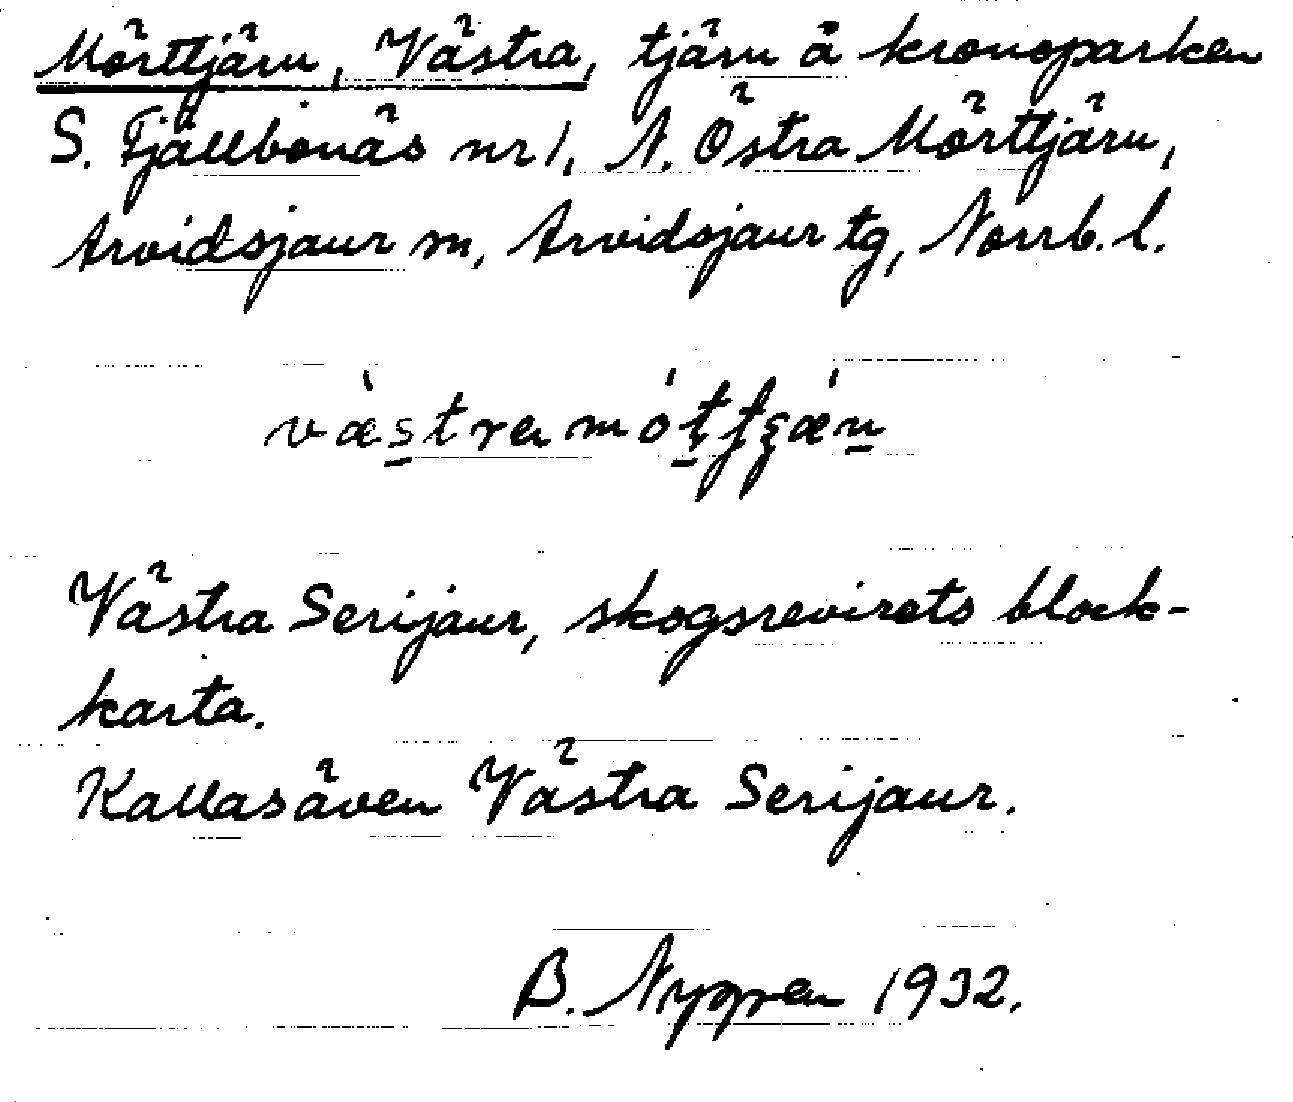 Mörttjärn, Västra, tjärn å kronoparken
S. Fjällbonäs nr 1, N. Östra Mörttjärn,
Arvidsjaur sn, Arvidsjaur tg, Norrb. l.
Västra Serijaur, skogsrevirets block-
karta.
Kallas även Västra Serijaur.
B. Nyppen 1932.